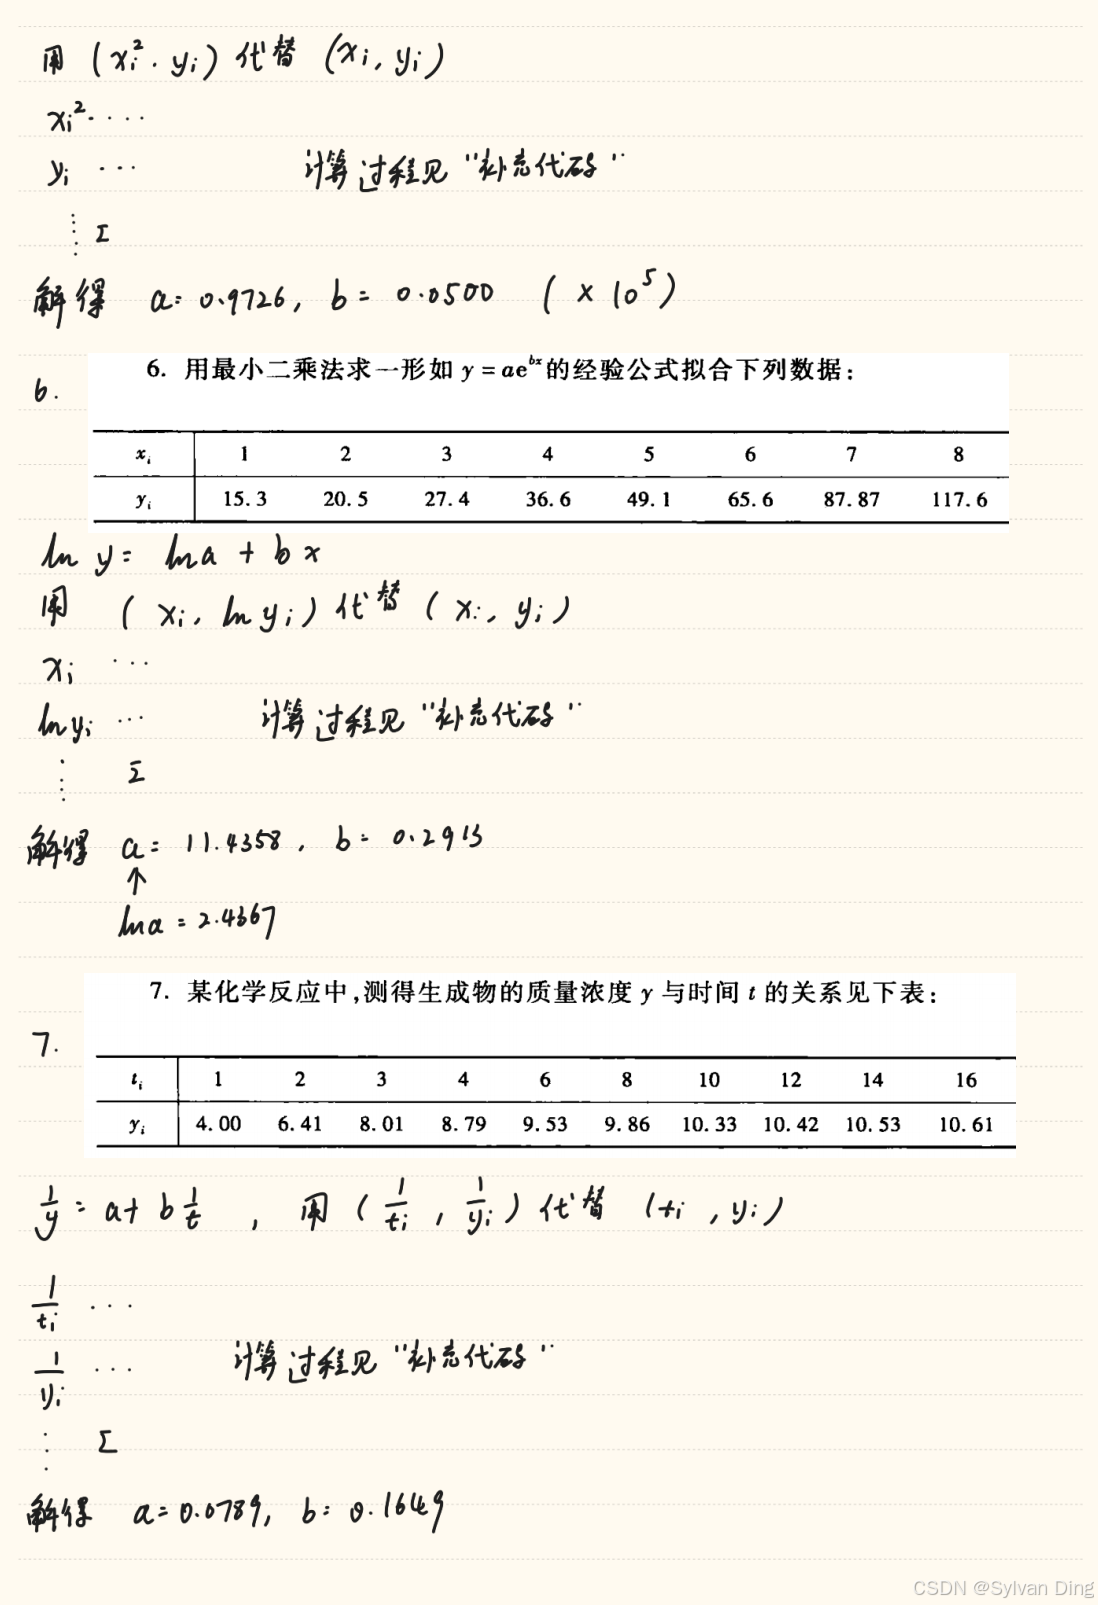 用 (xi². yi) 代替 (xi, yi)
xi² ····
yi ··· 计算过程见 "补充代码"
⋮ Σ
解得 a = 0.9726, b = 0.0500 ( × 10⁵ )
6. 用最小二乘法求一形如 y = ae^{bx} 的经验公式拟合下列数据:
6.
xi 1 2 3 4 5 6 7 8
yi 15.3 20.5 27.4 36.6 49.1 65.6 87.87 117.6
ln y = ln a + b x
用 ( xi, ln yi ) 代替 ( xi, yi )
xi ···
ln yi ··· 计算过程见 "补充代码"
⋮ Σ
解得 a = 11.4358, b = 0.2913
↑
ln a = 2.4367
7. 某化学反应中,测得生成物的质量浓度 y 与时间 t 的关系见下表:
7.
ti 1 2 3 4 6 8 10 12 14 16
yi 4.00 6.41 8.01 8.79 9.53 9.86 10.33 10.42 10.53 10.61
1/y = a + b 1/t , 用 ( 1/ti , 1/yi ) 代替 ( ti , yi )
1/ti ···
1/yi ··· 计算过程见 "补充代码"
⋮ Σ
解得 a = 0.0789, b = 0.1649
CSDN @Sylvan Ding